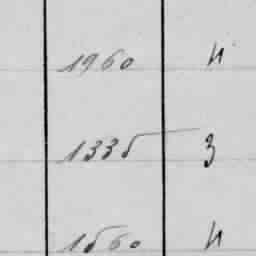 1960 И
1335 З
1560 И